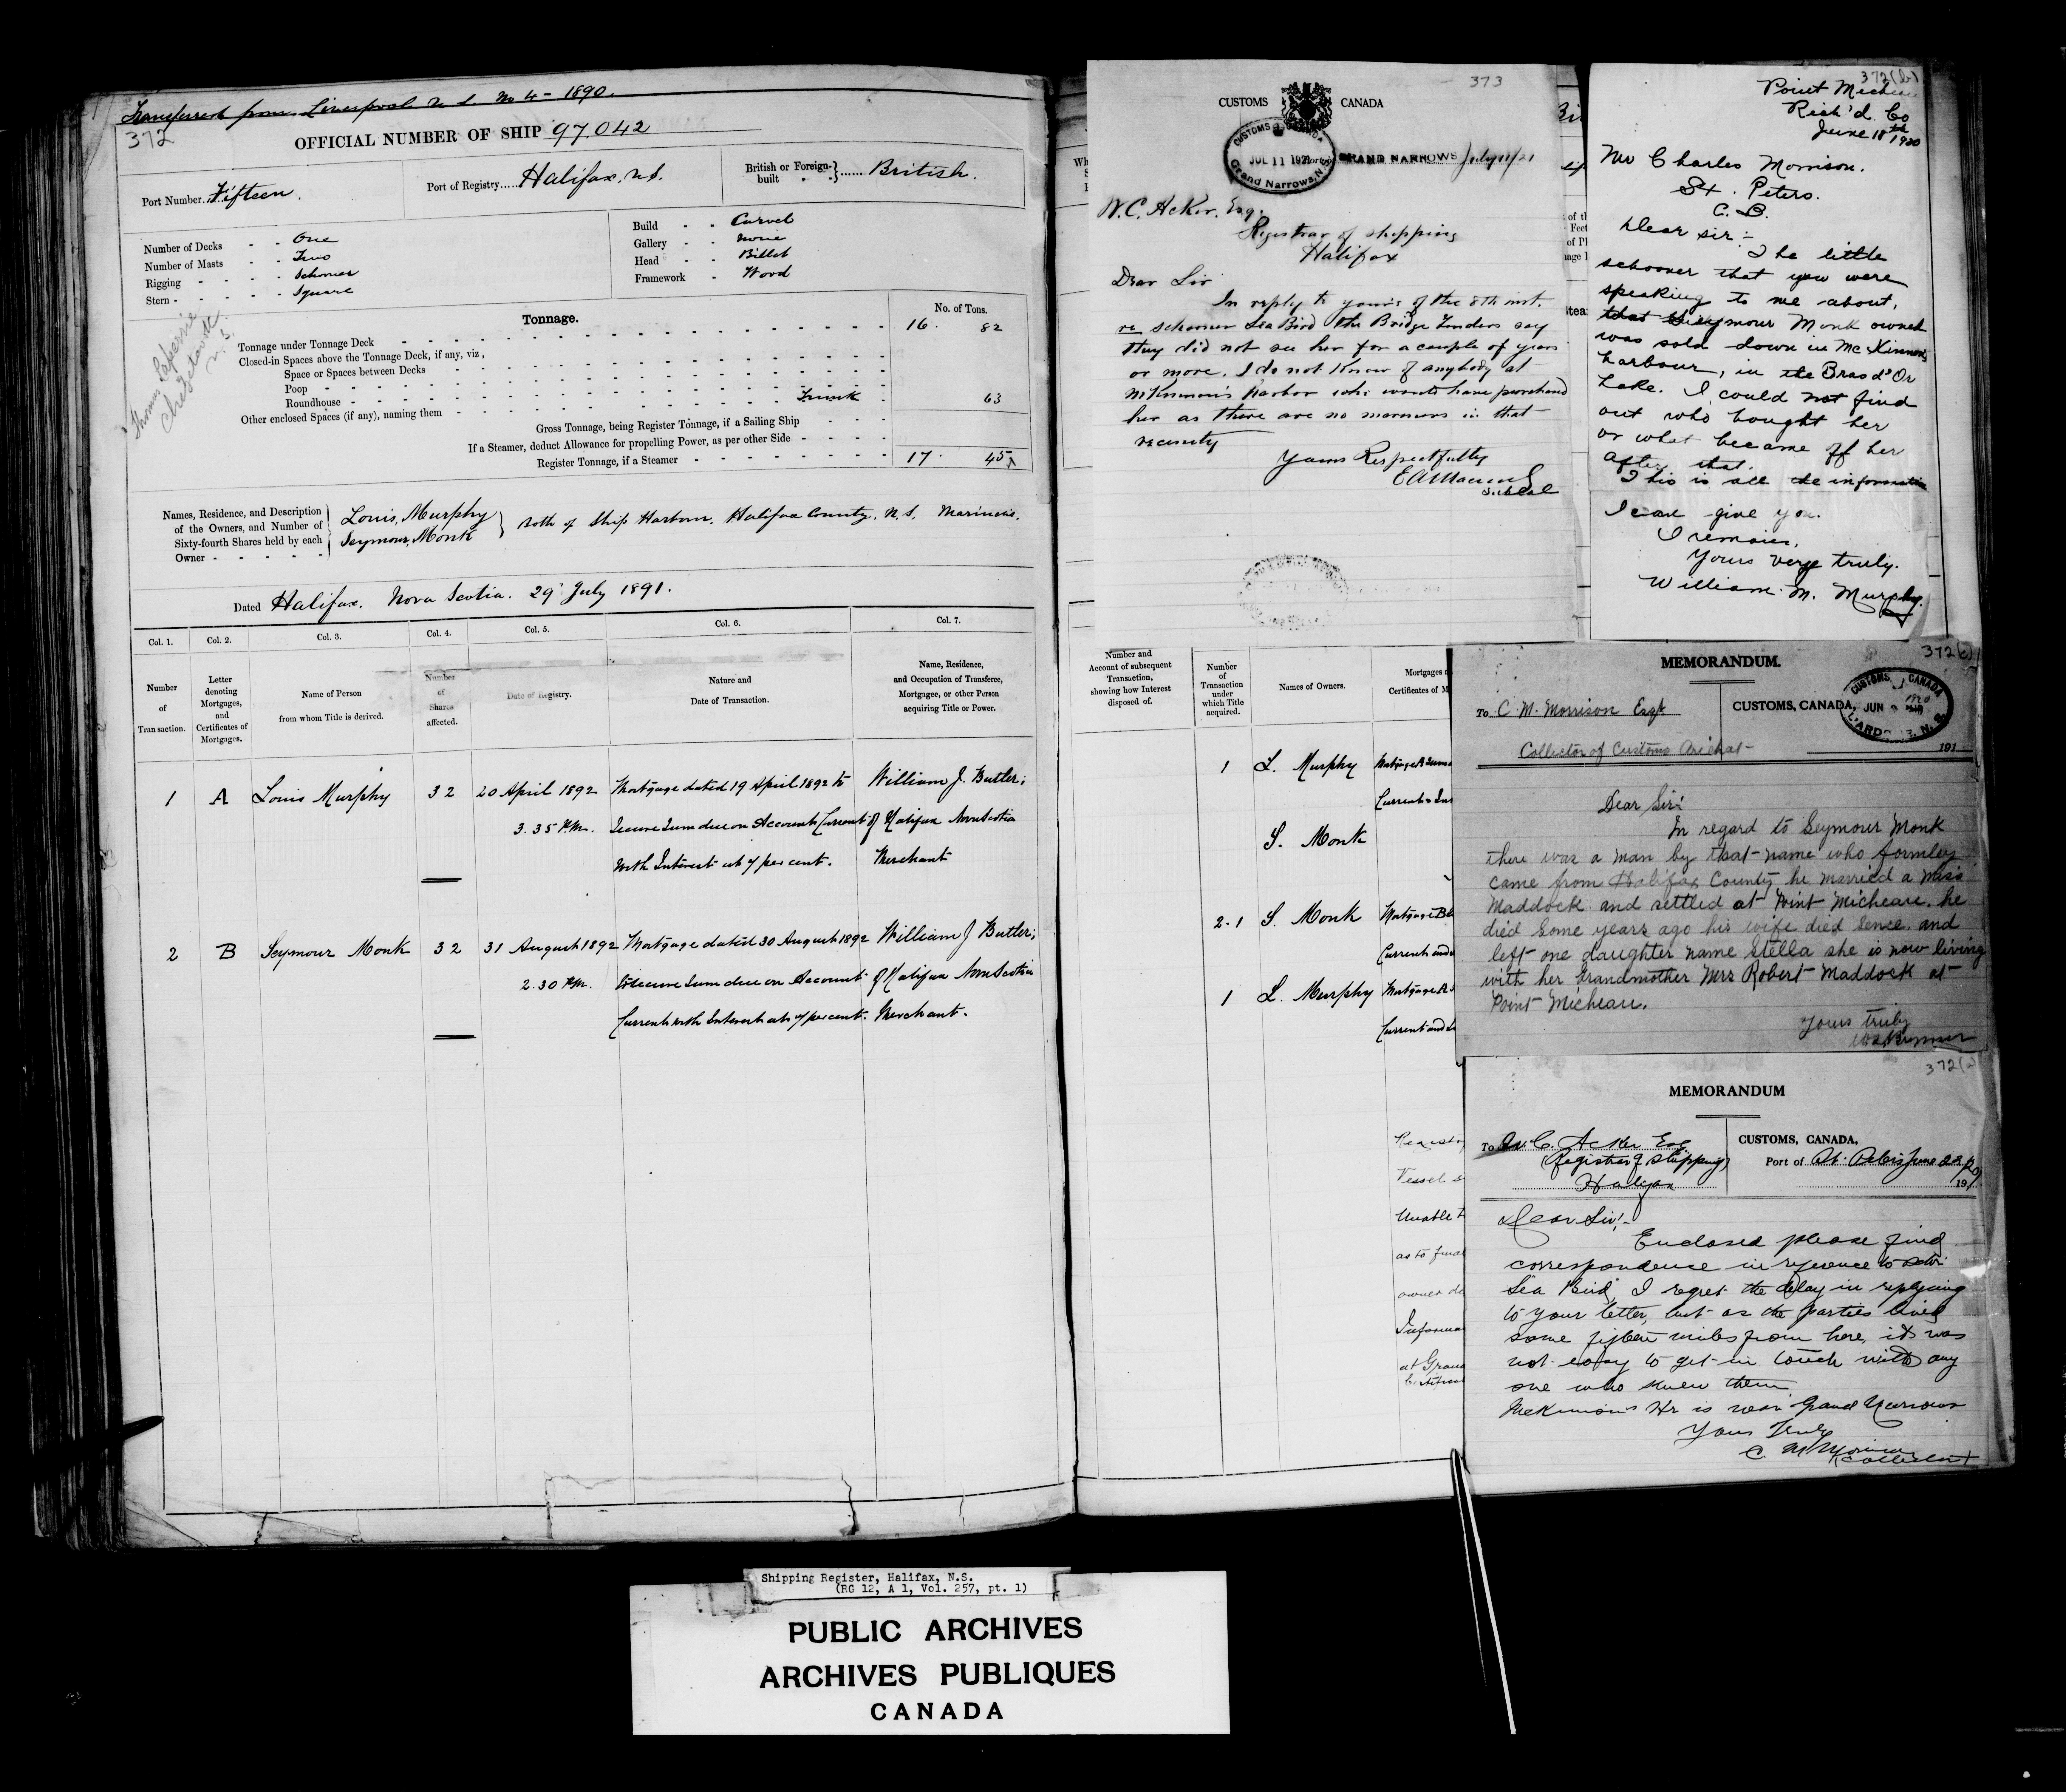 Transferred from Liverpool N.S. No 4 - 1890.
372
OFFICIAL NUMBER OF SHIP 97,042
Port Number. Fifteen.
Port of Registry...... Halifax. N.S.
British or Foreign-built } ...... British.
Number of Decks - - One
Number of Masts - - Two
Rigging - - - - Schooner
Stern - - - - - Square
Build - - Carvel
Gallery - - None
Head - - Billet
Framework - Wood
Thomas
Tonnage.
No. of Tons.
Tonnage under Tonnage Deck 16. 82
Closed-in Spaces above the Tonnage Deck, if any, viz,
Space or Spaces between Decks
Poop
Roundhouse
Other enclosed Spaces (if any), naming them Trunk 63
Gross Tonnage, being Register Tonnage, if a Sailing Ship
If a Steamer, deduct Allowance for propelling Power, as per other Side
Register Tonnage, if a Steamer 17. 45
Names, Residence, and Description
of the Owners, and Number of
Sixty-fourth Shares held by each
Owner
Louis, Murphy
Seymour, Monk
} Both of Ship Harbour. Halifax County. N.S. Mariners.
Dated Halifax. Nova Scotia. 29 July 1891.
Col. 1. Col. 2. Col. 3. Col. 4. Col. 5. Col. 6. Col. 7.
Number of Transaction.
Letter denoting Mortgages, and Certificates of Mortgages.
Name of Person from whom Title is derived.
Number of Shares affected.
Date of Registry.
Nature and Date of Transaction.
Name, Residence, and Occupation of Transferee, Mortgagee, or other Person acquiring Title or Power.
1 A Louis Murphy 32 20 April 1892 Mortgage dated 19 April 1892 to William J. Butler;
3.35 P.M. Secure Sum due on Account Current of Halifax Nova Scotia
with Interest at 7 per cent. Merchant
2 B Seymour Monk 32 31 August 1892 Mortgage dated 30 August 1892 William J Butler;
2.30 P.M. to Secure Sum due on Account of Halifax Nova Scotia
Current with Interest at 7 per cent. Merchant.
Number and
Account of subsequent
Transaction,
showing how Interest
disposed of.
Number
of
Transaction
under
which Title
acquired.
Names of Owners.
Mortgages a
Certificates of M
1 L. Murphy Mortgage A
Current
S. Monk
2-1 S. Monk Mortgage B
Current and
1 L. Murphy Mortgage A
Current and
Registr
Vessel s
Unable t
as to final
owner de
Informa
at Gran
Certificat
373
CUSTOMS CANADA
CUSTOMS CANADA
JUL 11 1921
Grand Narrows, N.S.
GRAND NARROWS July 11/21
W.C. Acker. Esq.
Registrar of shipping
Halifax
Dear Sir
In reply to yours of the 8th inst.
re schooner Sea Bird the Bridge Tenders say
they did not see her for a couple of years
or more. I do not know of anybody at
McKinnon's Harbor who would have purchased
her as there are no mariners in that
vicinity
Yours Respectfully
372(b)
Point Michea
Rich'd. Co
June 18th 1920
Mr Charles Morrison.
St. Peters.
C.B.
Dear Sir:-
The little
schooner that you were
speaking to me about,
that Seymour Monk owned
was sold down in McKinnons
harbour, in the Bras d'Or
Lake. I could not find
out who bought her
or what became off her
after that.
This is all the information
I can give you.
I remain,
Yours very truly.
William. M. Murphy.
372(c)
MEMORANDUM.
To C. M. Morrison Esqr
Collector of Customs Arichat
CUSTOMS, CANADA,
CUSTOMS, CANADA
JUN 1920
L'ARDOISE, N.S.
191
Dear Sir:
In regard to Seymour Monk
there was a man by that name who formley
came from Halifax County he married a Miss
Maddock and settled at Point Micheau. he
died some years ago his wife died sence. and
left one daughter name Stella she is now living
with her Grandmother Mrs Robert Maddock at
Point Micheau.
Yours truly
372(a)
MEMORANDUM
To W. C. Acker Esq
(Registrar of Shipping)
Halifax
CUSTOMS, CANADA,
Port of St. Peters June 22/20
191
Dear Sir:-
Enclosed please find
correspondence in reference to Schr
Sea Bird, I regret the delay in replying
to your letter, but as the parties lived
some fifteen miles from here, it was
not easy to get in touch with any
one who knew them.
McKinnon's Hr is near Grand Narrows
Yours Truly
C. M. Morrison
(Collector)
Shipping Register, Halifax, N.S.
(RG 12, A 1, Vol. 257, pt. 1)
PUBLIC ARCHIVES
ARCHIVES PUBLIQUES
CANADA